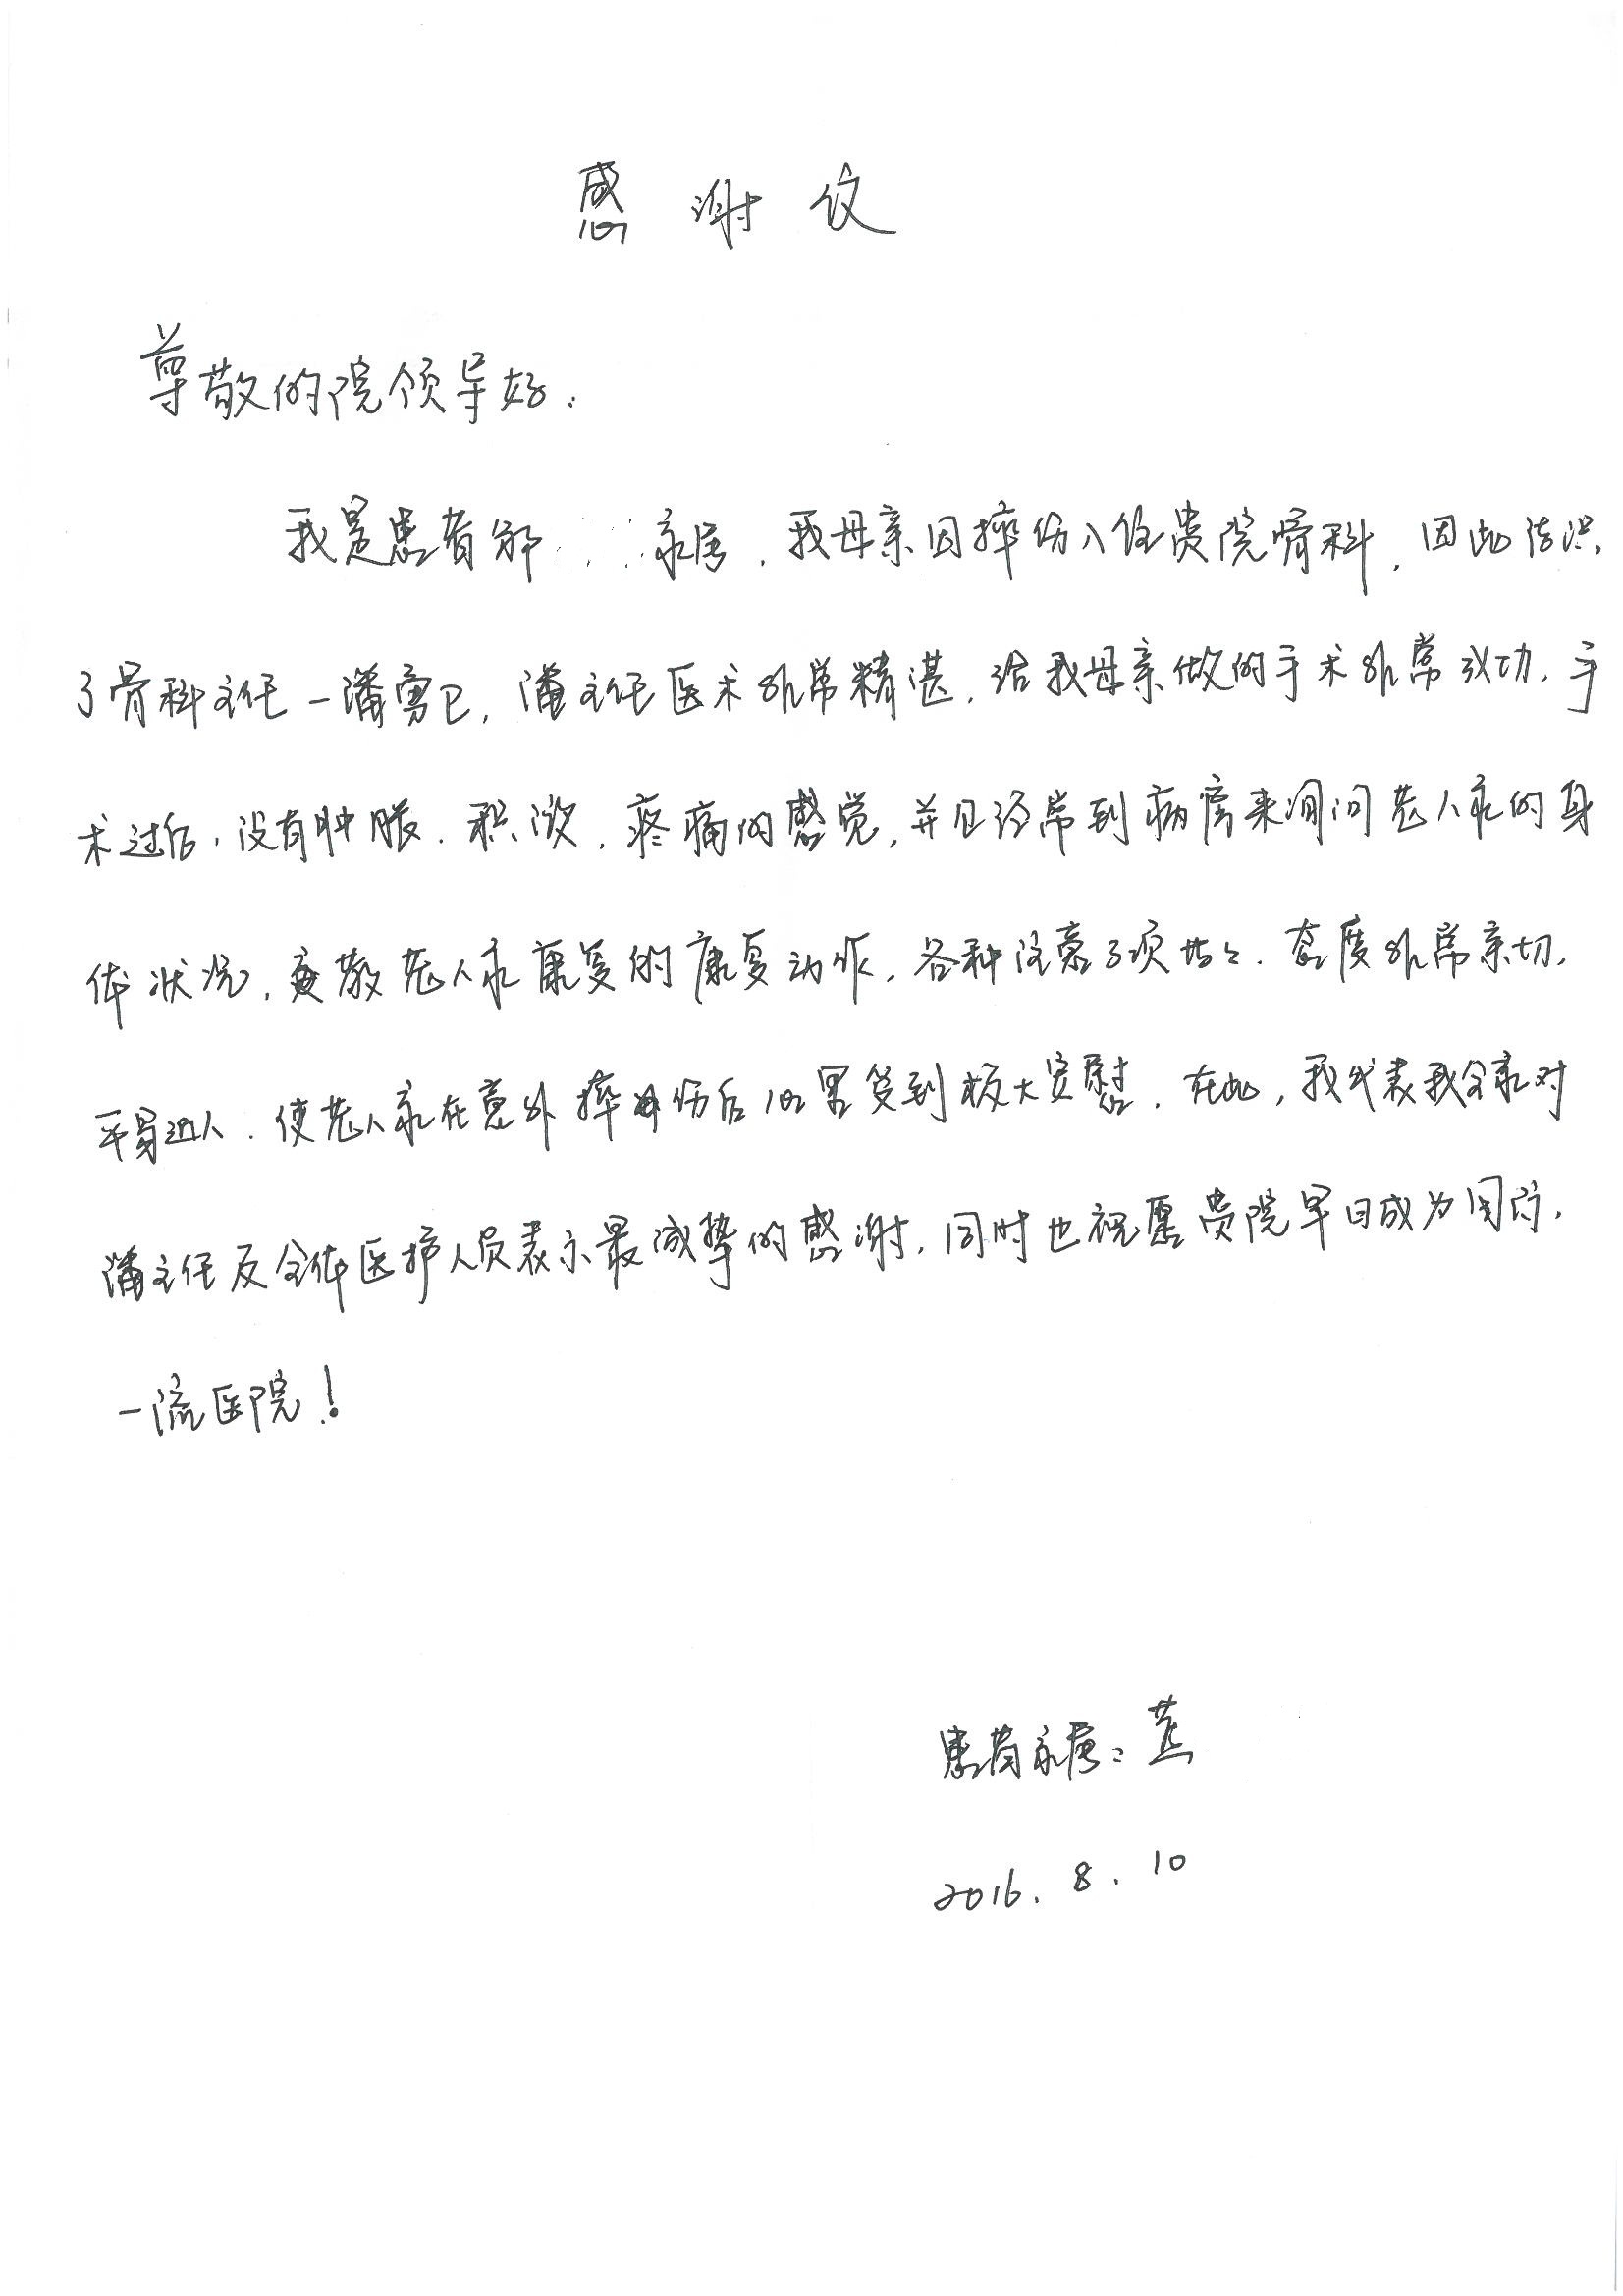 感谢仪
尊敬的院领导好：
我是患者解 家属，我母亲因摔伤入住贵院骨科，因此结识
了骨科主任－潘勇卫，潘主任医术非常精湛，给我母亲做的手术非常成功，手
术过后，没有肿胀、积液、疼痛的感觉，并且经常到病房来询问老人家的身
体状况，教老人家康复的康复动作，各种注意事项等等，态度非常亲切，
平易近人，使老人家在意外摔伤后心里受到极大宽慰，在此，我代表我全家对
潘主任及全体医护人员表示最诚挚的感谢，同时也祝愿贵院早日成为国际，
一流医院！
患者家属：
2016.8.10